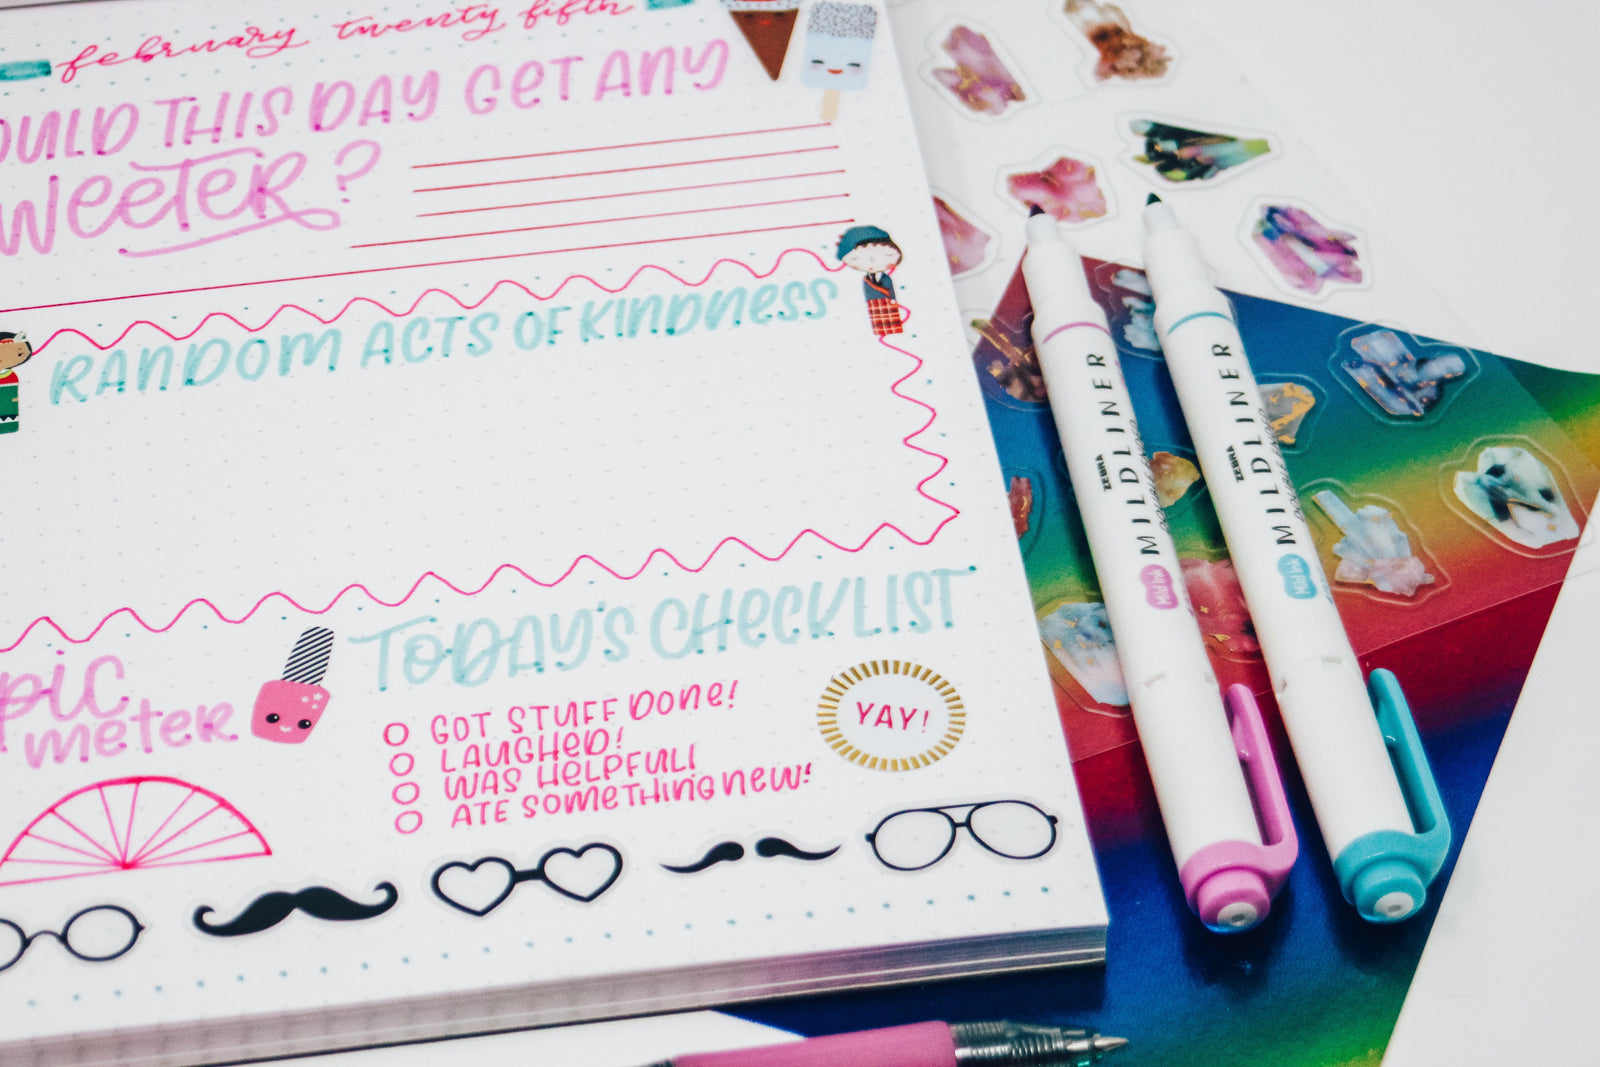 february twenty fifth
OULD THIS DAY GET ANY
WEETER?
RANDOM ACTS OF KINDNESS
TODAY'S CHECKLIST
pic
meter
GOT STUFF DONE!
LAUGHED!
WAS HELPFUL!
ATE SOMETHING NEW!
YAY!
ZEBRA
MILDLINER
Mild Ink
ZEBRA
MILDLINER
Mild Ink